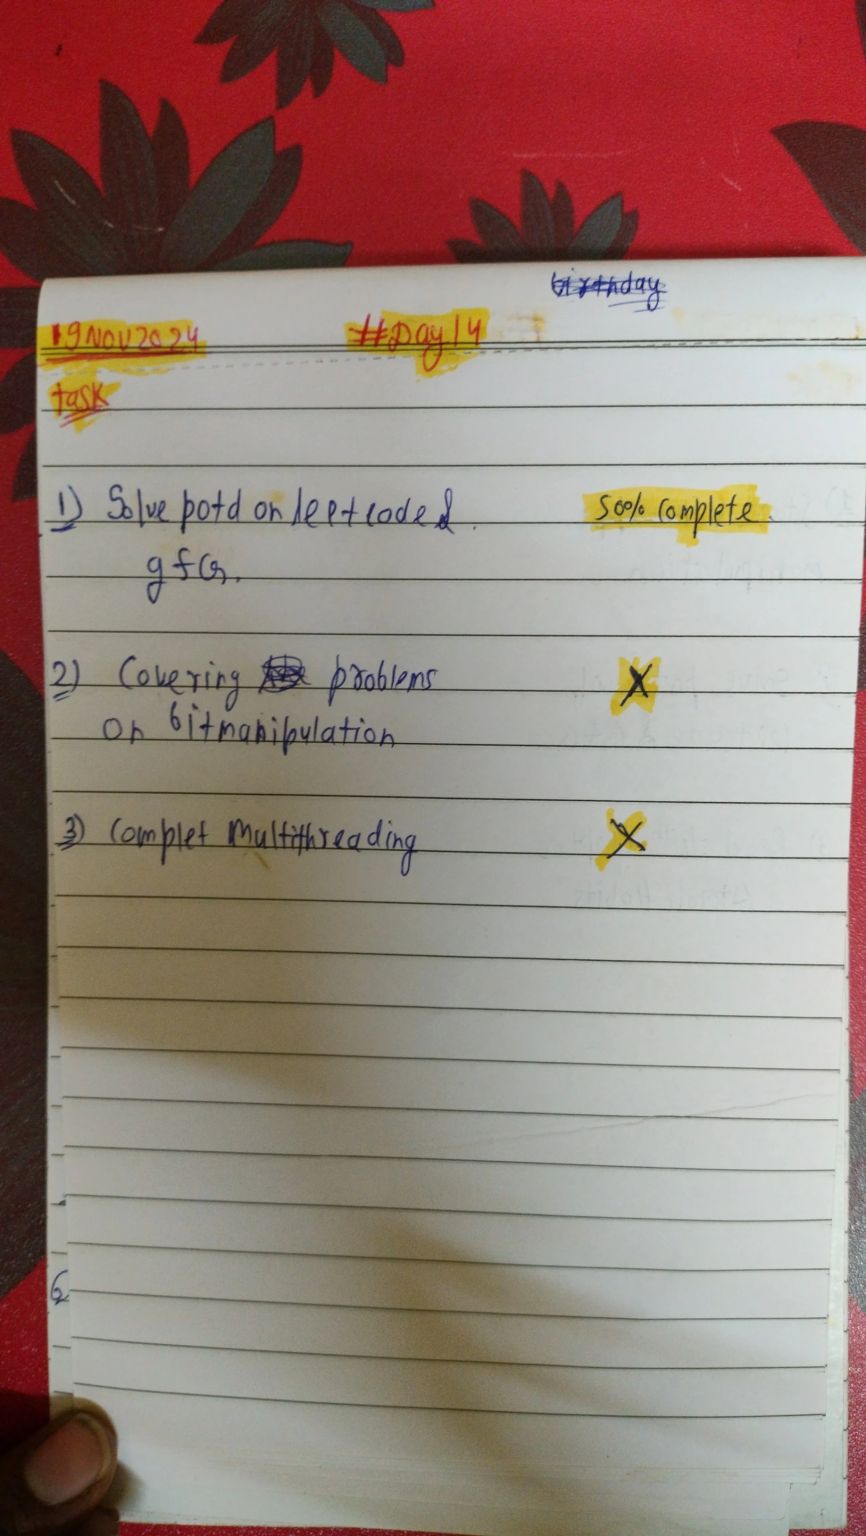 birthday
19 NOV 2024 #Day 14
task
1) Solve potd on leetcode & 50% complete.
gfG.
2) Covering problems X
on bitmanipulation
3) Complet Multithreading X
6